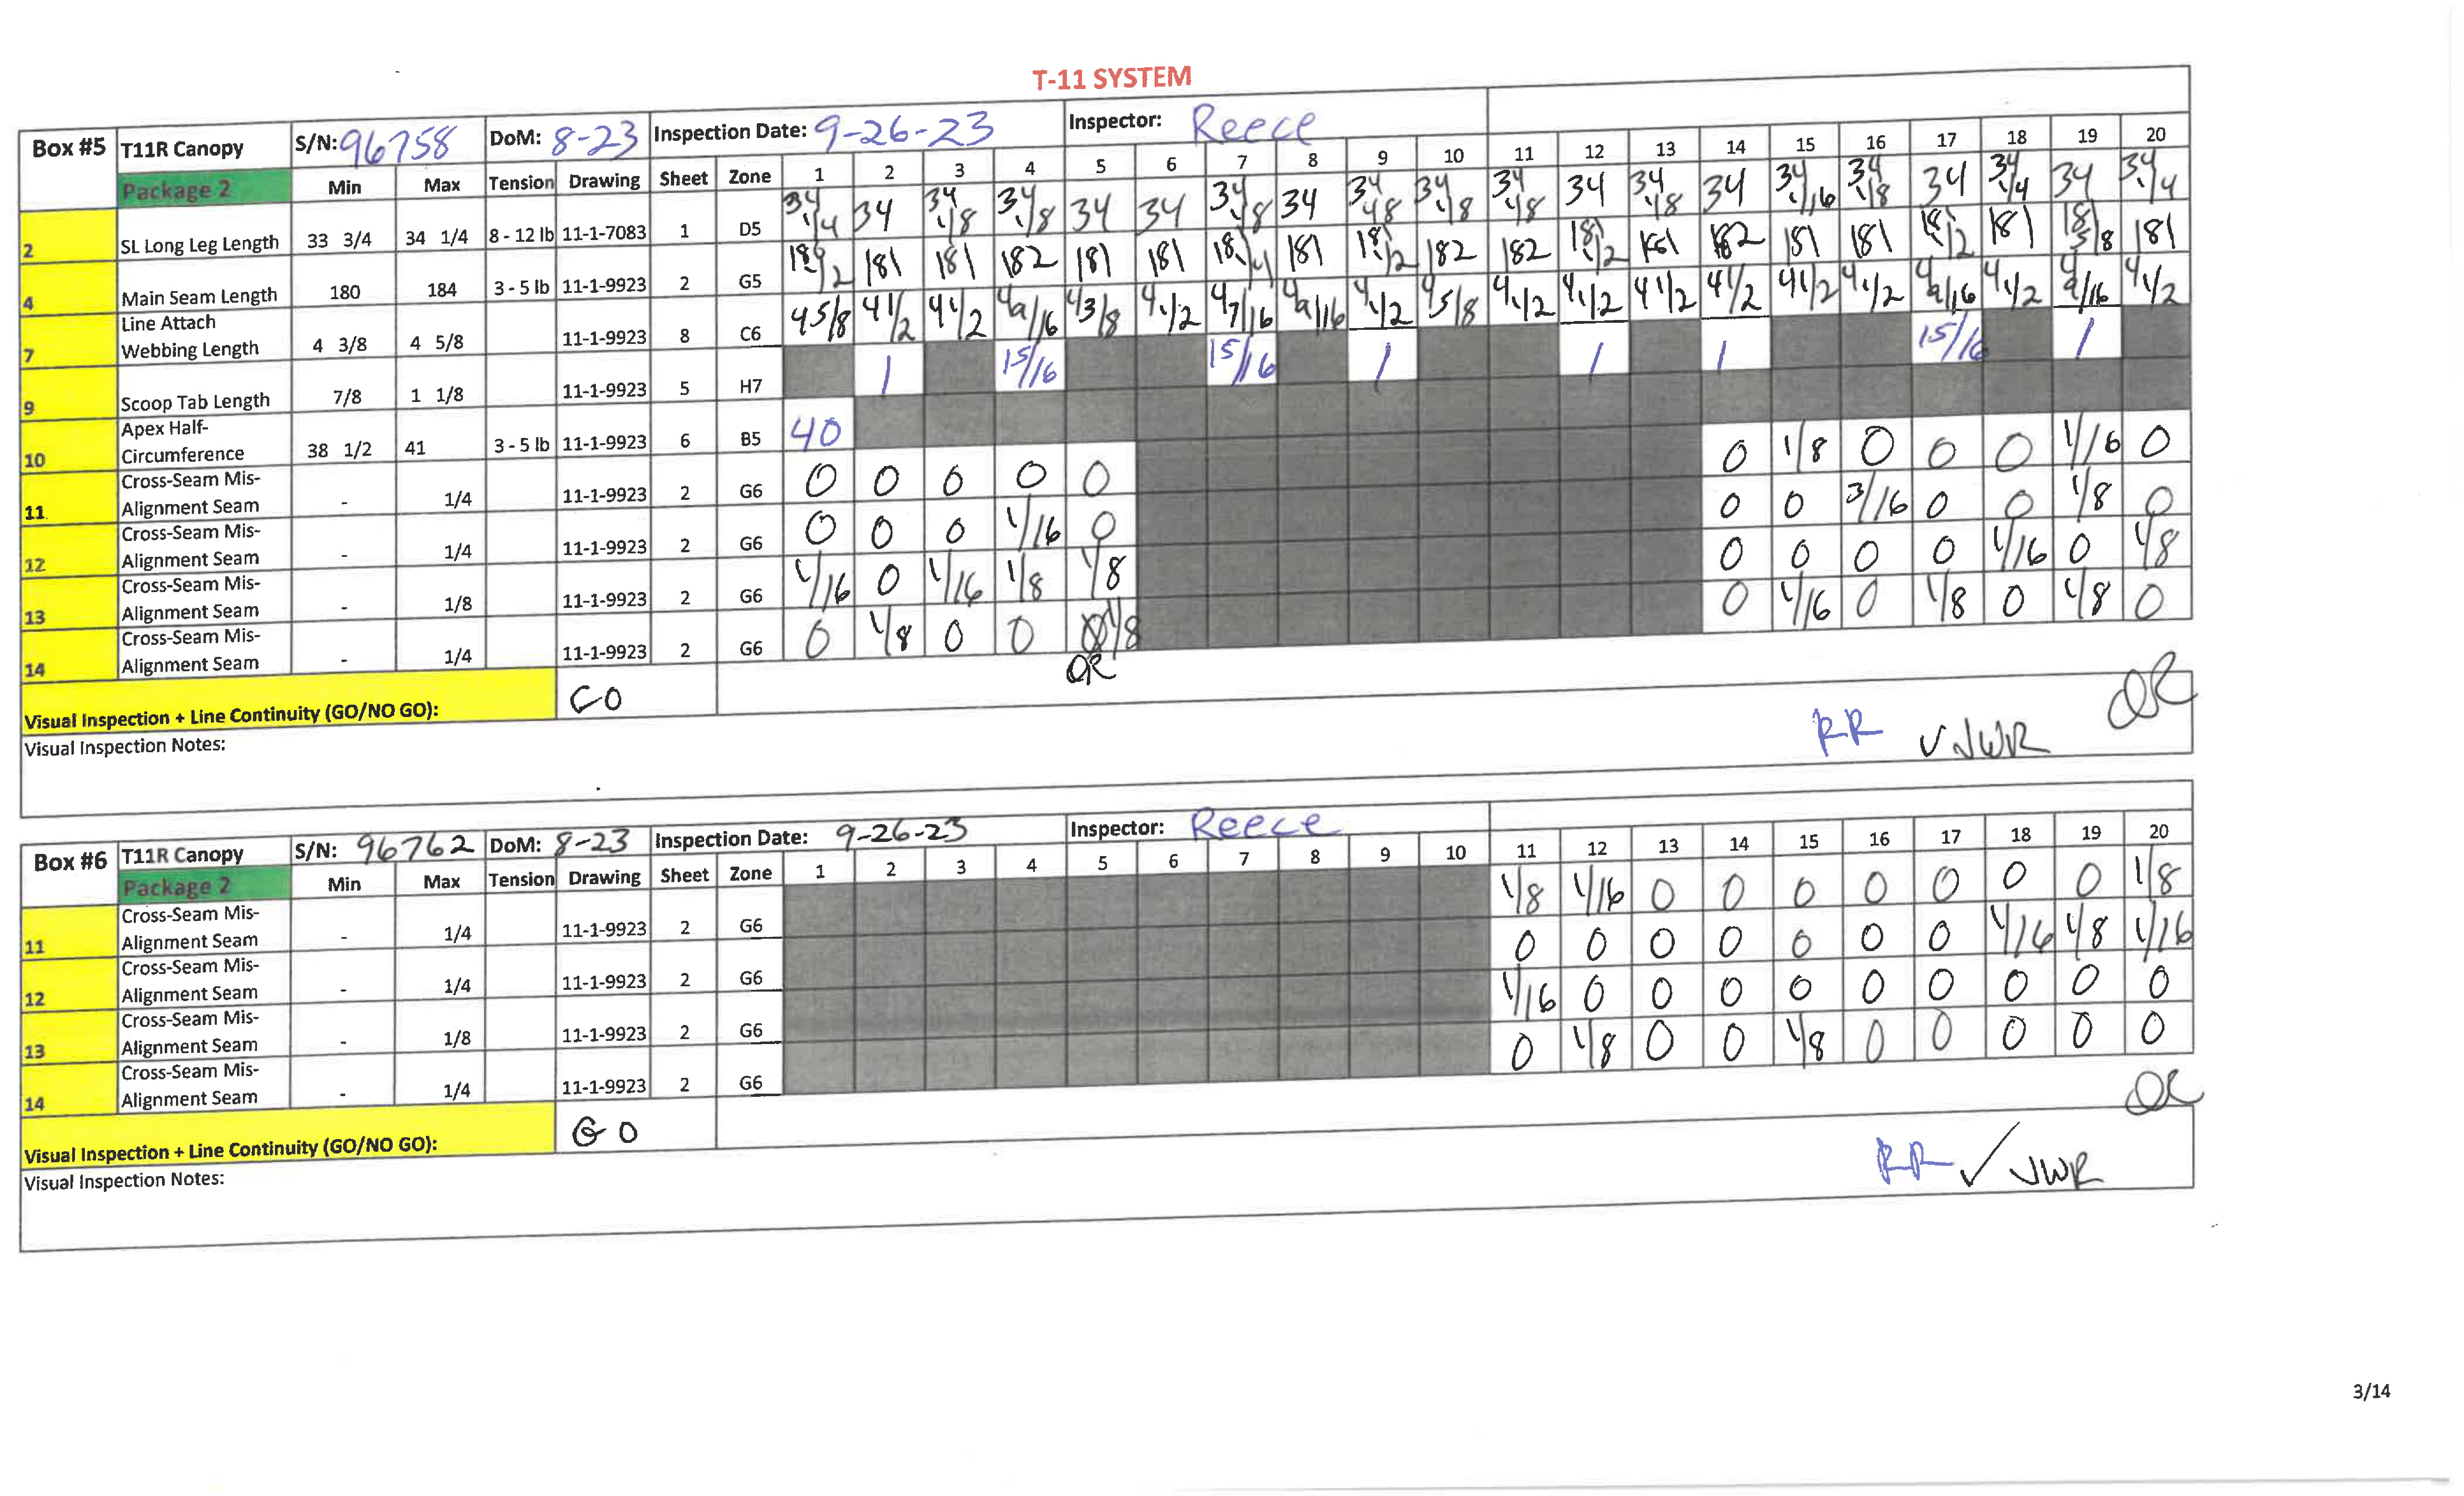 T-11 SYSTEM
Box #5 T11R Canopy S/N: 96758 DoM: 8-23 Inspection Date: 9-26-23 Inspector: Reece
Package 2 Min Max Tension Drawing Sheet Zone 1 2 3 4 5 6 7 8 9 10 11 12 13 14 15 16 17 18 19 20
2 SL Long Leg Length 33 3/4 34 1/4 8 - 12 lb 11-1-7083 1 D5 34 1/4 34 34 1/8 34 1/8 34 34 34 1/8 34 34 1/8 34 1/8 34 1/8 34 34 1/8 34 34 1/16 34 1/8 34 34 1/4 34 34 1/4
4 Main Seam Length 180 184 3 - 5 lb 11-1-9923 2 G5 181 181 182 181 181 181 182 182 182 181 181 181 181
7 Line Attach Webbing Length 4 3/8 4 5/8 11-1-9923 8 C6 4 5/8 4 1/2 4 1/2 4 9/16 4 3/8 4 1/2 4 7/16 4 9/16 4 1/2 4 5/8 4 1/2 4 1/2 4 1/2 4 1/2 4 1/2 4 1/2 4 9/16 4 1/2 4 9/16 4 1/2
9 Scoop Tab Length 7/8 1 1/8 11-1-9923 5 H7 1 15/16 15/16 1 1 1 15/16 1
10 Apex Half-Circumference 38 1/2 41 3 - 5 lb 11-1-9923 6 B5 40
11 Cross-Seam Mis-Alignment Seam - 1/4 11-1-9923 2 G6 0 0 0 0 0 0 1/8 0 0 0 1/16 0
12 Cross-Seam Mis-Alignment Seam - 1/4 11-1-9923 2 G6 0 0 0 1/16 0 0 0 3/16 0 0 1/8 0
13 Cross-Seam Mis-Alignment Seam - 1/8 11-1-9923 2 G6 1/16 0 1/16 1/8 1/8 0 0 0 0 1/16 0 1/8
14 Cross-Seam Mis-Alignment Seam - 1/4 11-1-9923 2 G6 0 1/8 0 0 1/8 0 1/16 0 1/8 0 1/8 0
Visual Inspection + Line Continuity (GO/NO GO): GO
Visual Inspection Notes:
RR ✓ JWR
Box #6 T11R Canopy S/N: 96762 DoM: 8-23 Inspection Date: 9-26-23 Inspector: Reece
Package 2 Min Max Tension Drawing Sheet Zone 1 2 3 4 5 6 7 8 9 10 11 12 13 14 15 16 17 18 19 20
11 Cross-Seam Mis-Alignment Seam - 1/4 11-1-9923 2 G6 1/8 1/16 0 0 0 0 0 0 0 1/8
12 Cross-Seam Mis-Alignment Seam - 1/4 11-1-9923 2 G6 0 0 0 0 0 0 0 1/16 1/8 1/16
13 Cross-Seam Mis-Alignment Seam - 1/8 11-1-9923 2 G6 1/16 0 0 0 0 0 0 0 0 0
14 Cross-Seam Mis-Alignment Seam - 1/4 11-1-9923 2 G6 0 1/8 0 0 1/8 0 0 0 0 0
Visual Inspection + Line Continuity (GO/NO GO): GO
Visual Inspection Notes:
RR ✓ JWR
3/14